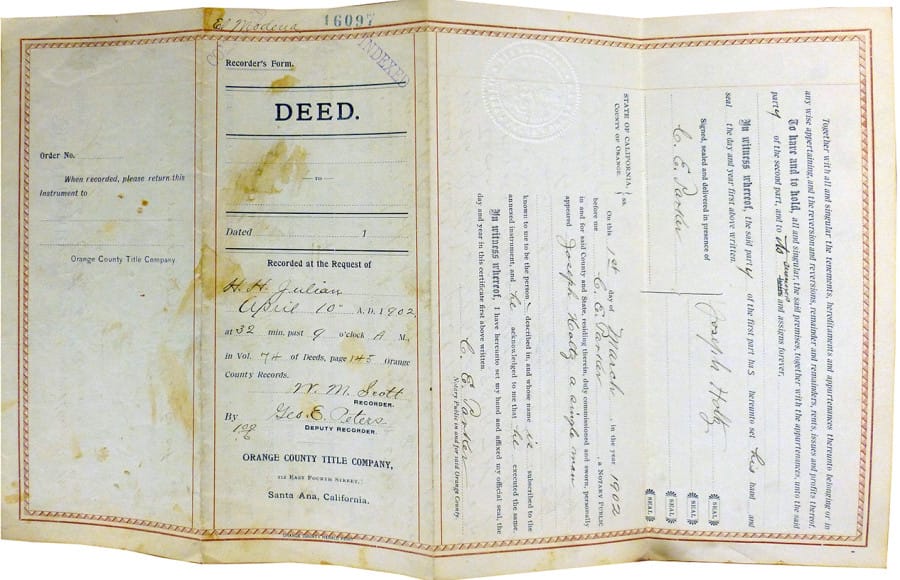 El Modena
16097
INDEXED
Order No.
When recorded, please return this
instrument to
Orange County Title Company
Recorder's Form.
DEED.
— TO —
Dated 1
Recorded at the Request of
H. H. Julian
April 10" A. D. 1902,
at 32 min. past 9 o'clock A M.,
in Vol. 74 of Deeds, page 145, Orange
County Records.
W. M. Scott
RECORDER.
By Geo. E. Peters
DEPUTY RECORDER.
ORANGE COUNTY TITLE COMPANY,
112 EAST FOURTH STREET,
Santa Ana, California.
Together with all and singular the tenements, hereditaments and appurtenances thereunto belonging or in
any wise appertaining, and the reversion and reversions, remainder and remainders, rents, issues and profits thereof.
To have and to hold, all and singular, the said premises, together with the appurtenances, unto the said
party of the second part, and to its successors and assigns forever.
In witness whereof, the said party of the first part has hereunto set his hand and
seal the day and year first above written.
Signed, sealed and delivered in presence of
C. E. Parker
Joseph Holtz
SEAL
SEAL
SEAL
SEAL
STATE OF CALIFORNIA,
COUNTY OF ORANGE. } ss.
On this 1st day of March, in the year 1902
before me C. E. Parker, a NOTARY PUBLIC
in and for said County and State, residing therein, duly commissioned and sworn, personally
appeared Joseph Holtz a single man
known to me to be the person described in, and whose name is subscribed to the
annexed instrument, and he acknowledged to me that he executed the same.
In witness whereof, I have hereunto set my hand and affixed my official seal, the
day and year in this certificate first above written.
C. E. Parker
Notary Public in and for said Orange County.